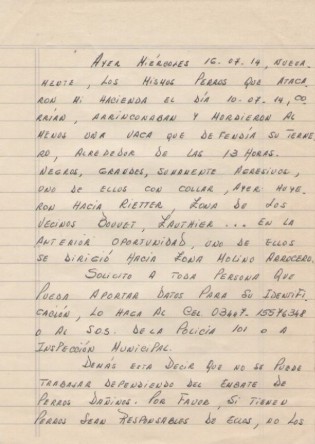 Ayer Miércoles 16-07-14, nueva-
mente, los mismos perros que ataca-
ron mi hacienda el día 10-07-14, co-
rrían, arrinconaban y mordieron al
menos una vaca que defendía su terne-
ro, alrededor de las 13 horas.
Negros, grandes, sumamente agresivos,
uno de ellos con collar, ayer huye-
ron hacia Rietter, zona de los
vecinos Bouvet, Lauthier... En la
anterior oportunidad, uno de ellos
se dirigió hacia zona Molino Arrocero.
Solicito a toda persona que
pueda aportar datos para su identifi-
cación, lo haga al cel 03447. 15576348
o al S.O.S. de la policía 101 o a
Inspección Municipal.
Demás está decir que no se puede
trabajar dependiendo del embate de
perros dañinos. Por favor, si tienen
perros sean responsables de ellos, no los